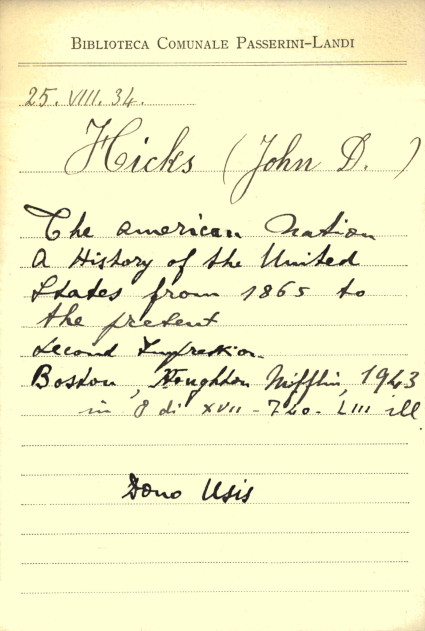 BIBLIOTECA COMUNALE PASSERINI-LANDI
25. VIII. 34.
Hicks (John D.)
The american Nation
A History of the United
States from 1865 to
the present
second Impression.
Boston, Houghton Mifflin, 1943
in 8 di XVII - 740 - LIII ill
Dono Usis